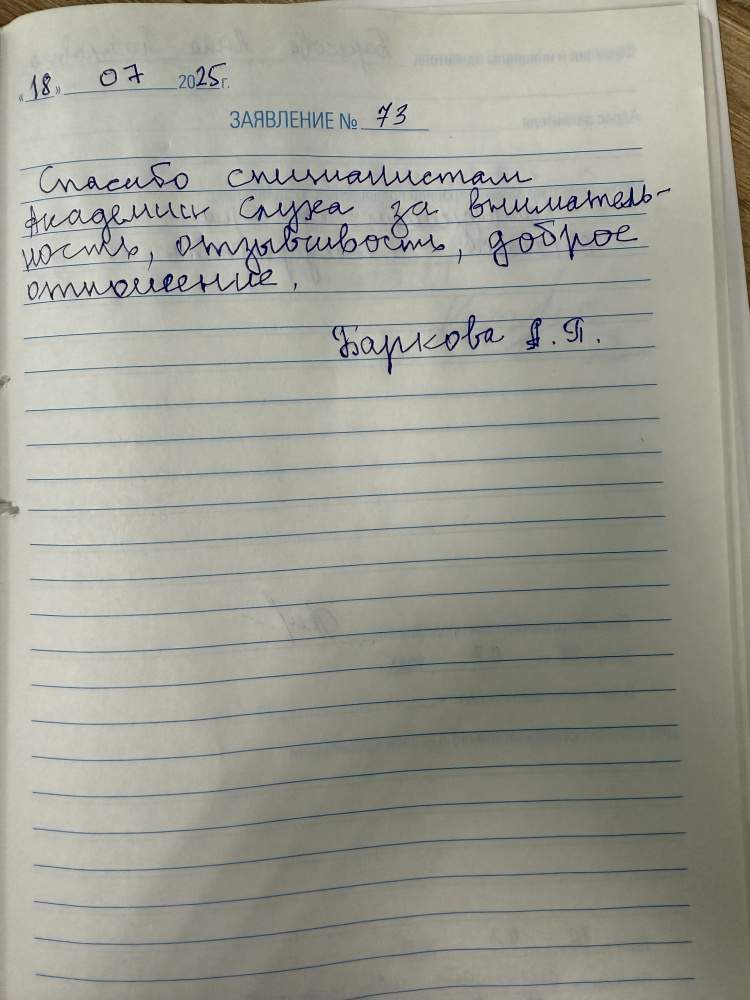 «18» 07 2025г.
ЗАЯВЛЕНИЕ № 73
Спасибо специалистам
Академии Слуха за вниматель-
ность, отзывчивость, доброе
отношение.
Баркова А.П.